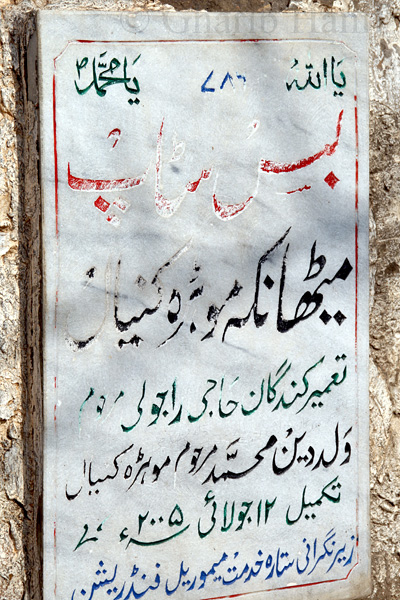 © Gharib Hanif
یا اللہ ۷۸۶ یا محمدؐ
بس سٹاپ
میٹھا نکہ موہڑہ کنیال
تعمیر کنندگان حاجی راجولی مرحوم
ولد دین محمد مرحوم موہڑہ کنیال
تکمیل ۱۲ جولائی ۲۰۰۵ء
زیر نگرانی ستارہ خدمت میموریل فنڈریشن